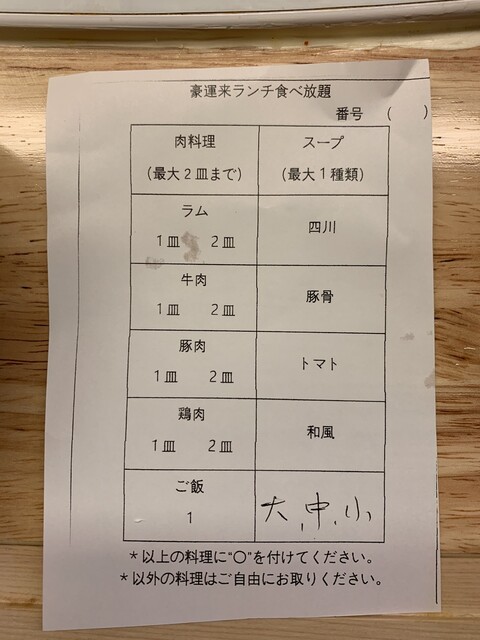 豪運来ランチ食べ放題
番号 ( )
肉料理 スープ
(最大2皿まで) (最大1種類)
ラム
1皿 2皿 四川
牛肉
1皿 2皿 豚骨
豚肉
1皿 2皿 トマト
鶏肉
1皿 2皿 和風
ご飯
1 大,中,小
*以上の料理に"〇"を付けてください。
*以外の料理はご自由にお取りください。